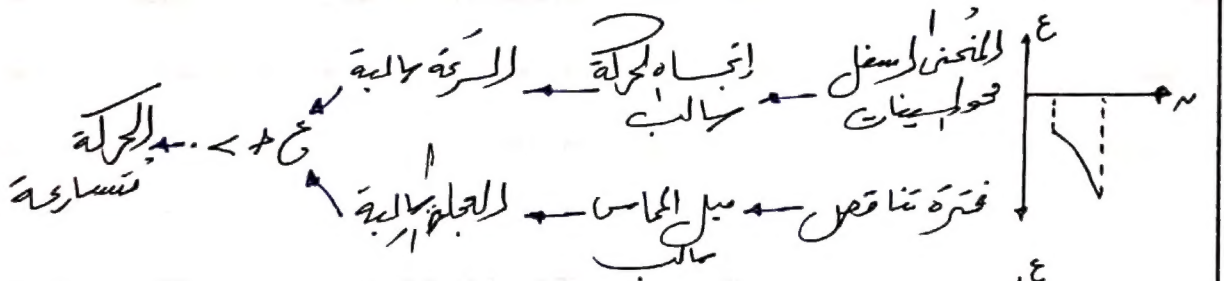 المنحنى أسفل محور السينات ← إتجاه الحركة سالب ← السرعة سالبة
فترة تناقص ← ميل المماس سالب ← العجلة سالبة
الحركة متسارعة
ع
ن
ع